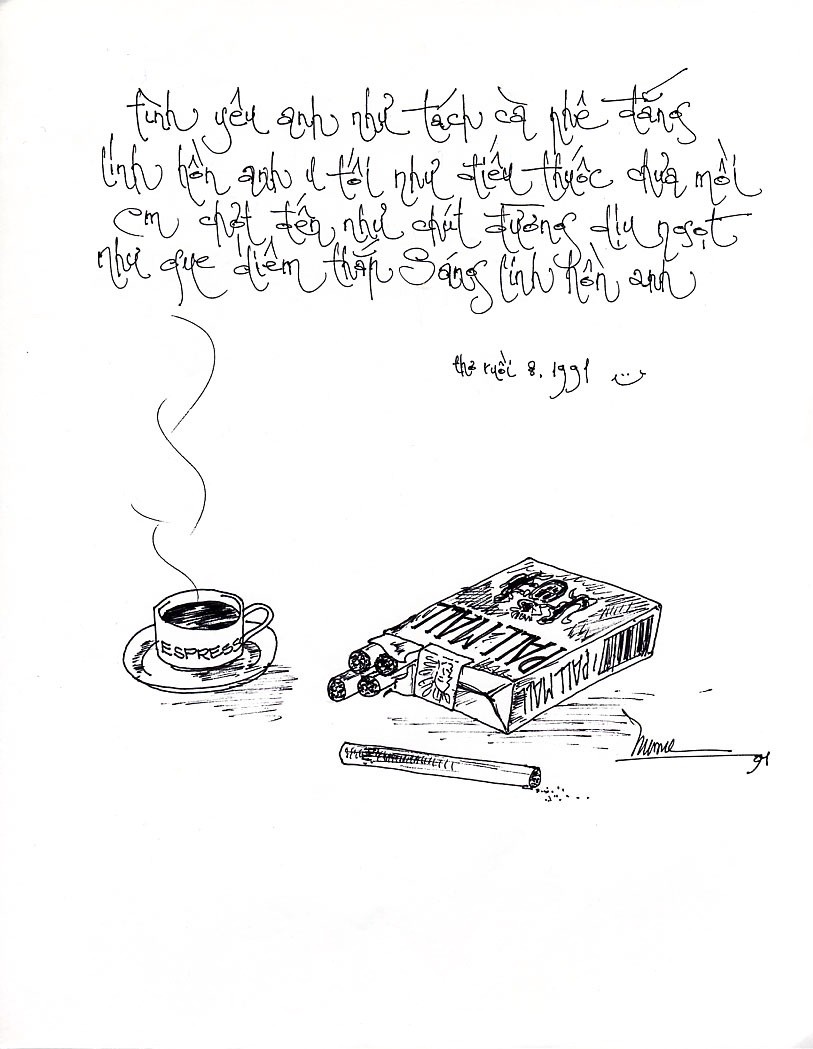 tình yêu anh như tách cà phê đắng
linh hồn anh u tối như điếu thuốc chưa mồi
em chợt đến như chút đường dịu ngọt
như que diêm thắp sáng linh hồn anh
thơ ruồi 8.1991
ESPRESSO
PALL MALL
PALL MALL
PALL MALL
91